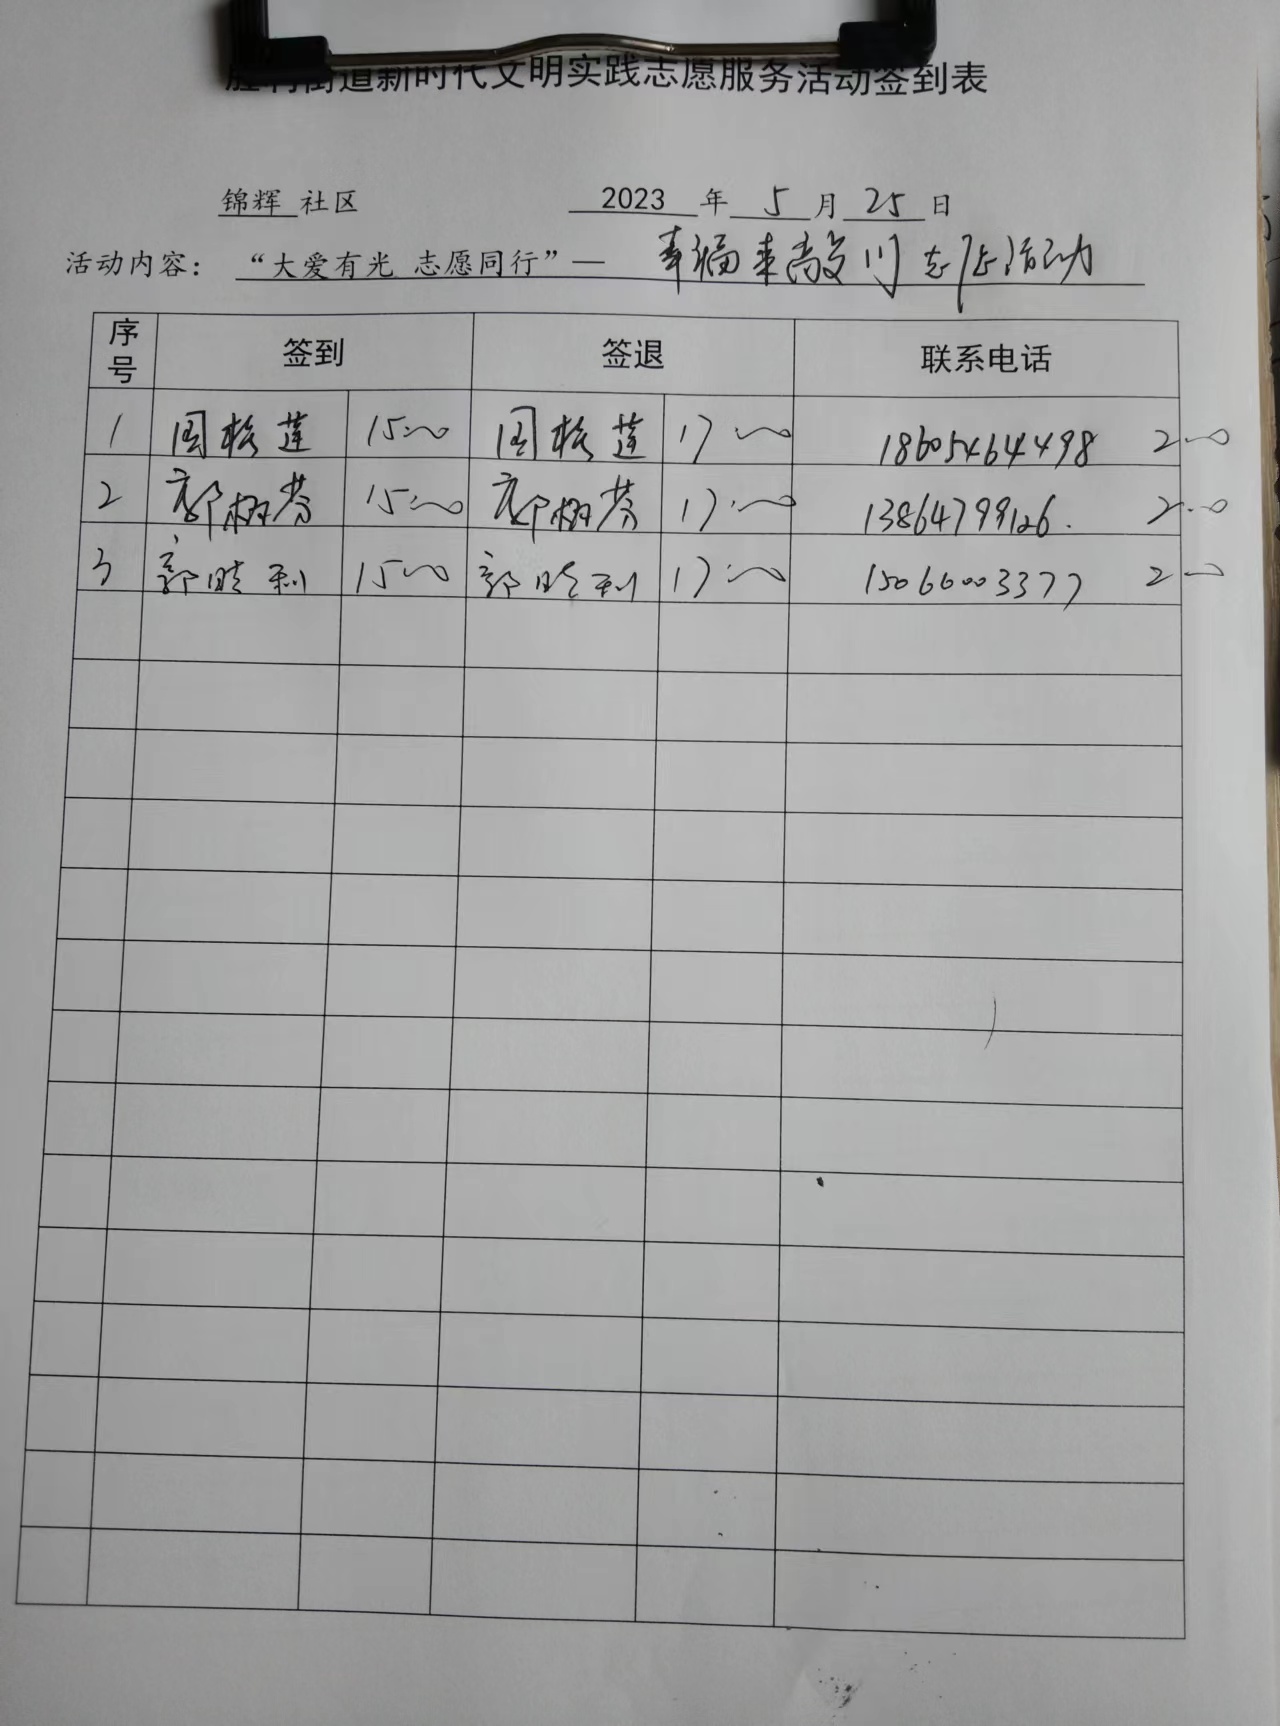 胜利街道新时代文明实践志愿服务活动签到表
锦辉 社区 2023 年 5 月 25 日
活动内容： “大爱有光 志愿同行”— 幸福来敲门志愿活动
序号 签到 签退 联系电话
1 周桂莲 15:00 周桂莲 17:00 18605464498 2:00
2 郭树芬 15:00 郭树芬 17:00 13864799126. 2:00
3 郭晓利 15:00 郭晓利 17:00 15066003377 2:00